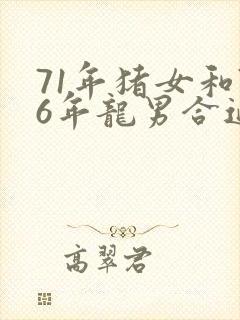 71年猪女和
6年龍男合
高翠君